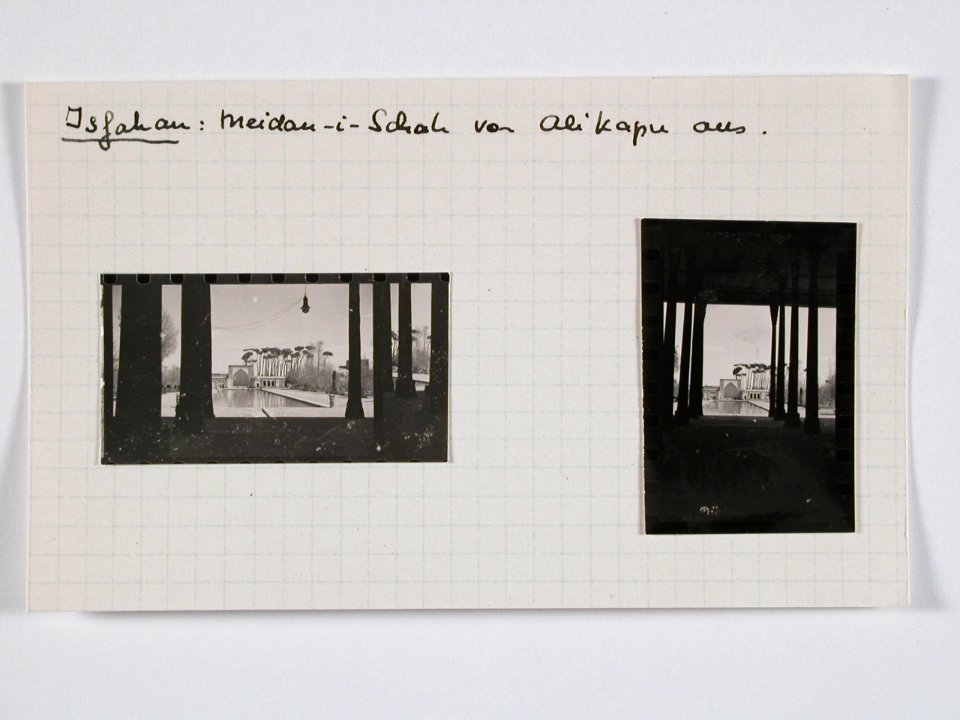 Isfahan: Meidan-i-Schah von Ali Kapu aus.